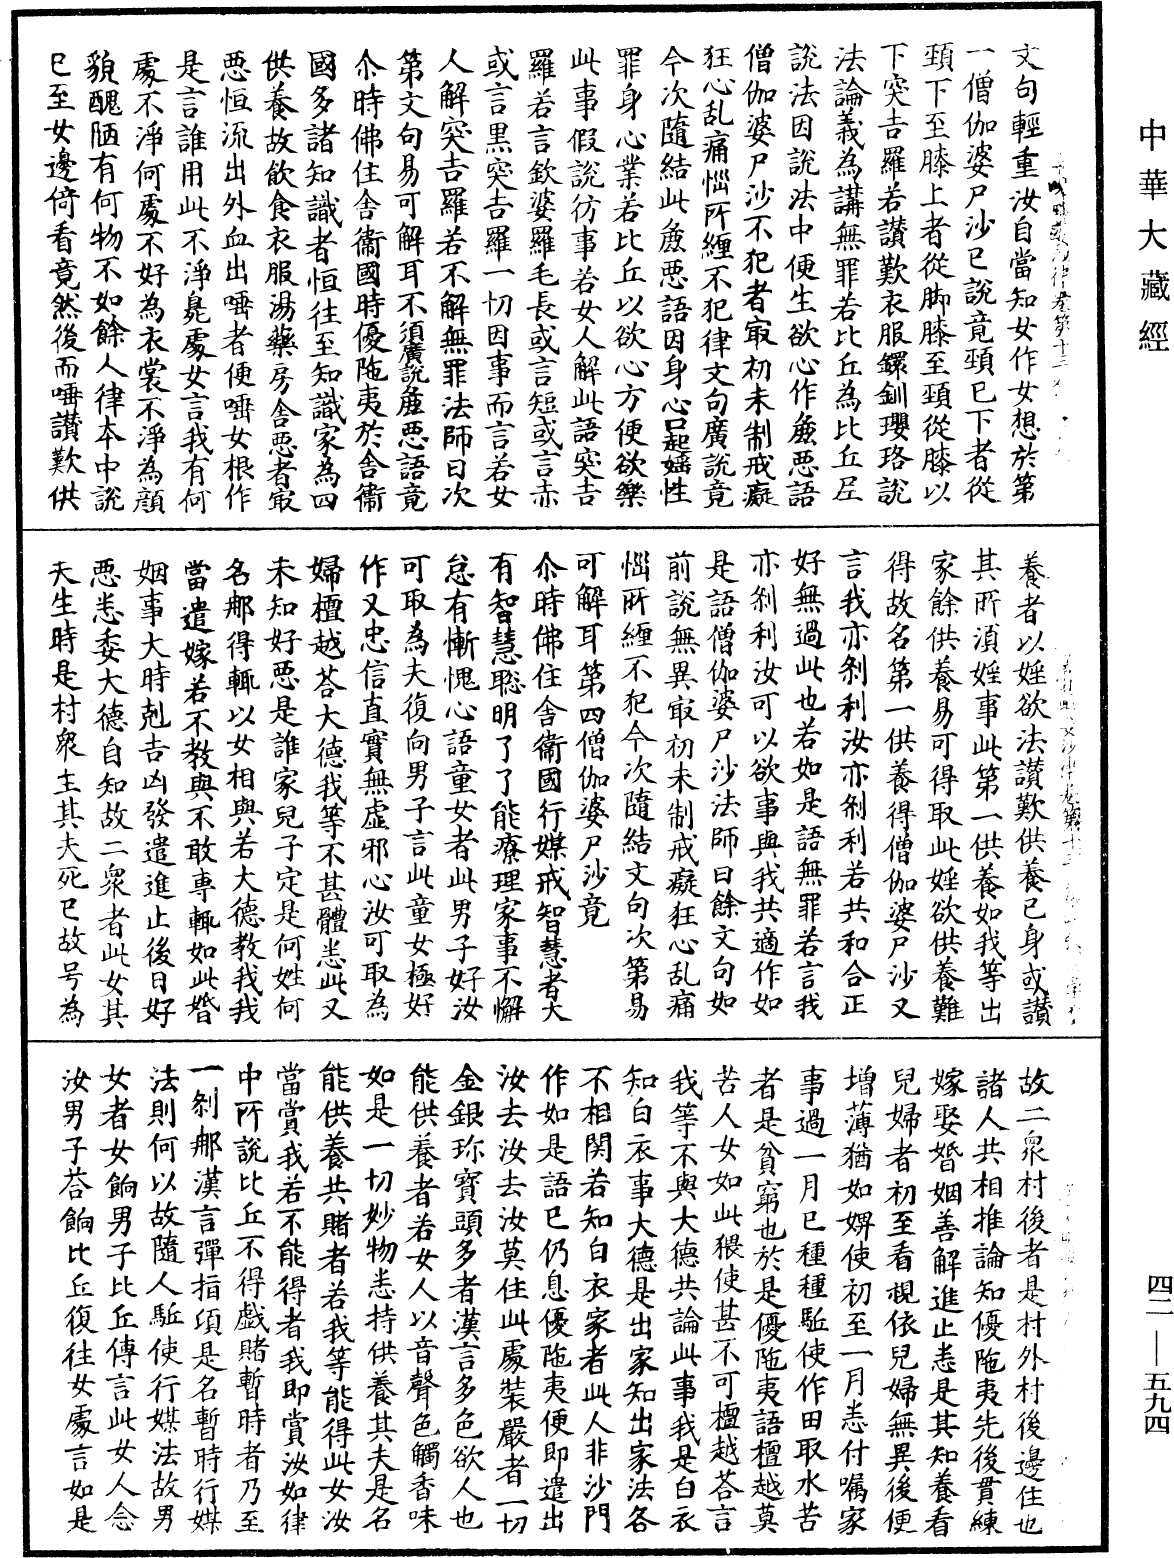 中華大藏經
文句輕重汝自當知女作女想於第
一僧伽婆尸沙已說竟頸已下者從
頸下至膝上者從脚膝至頸從膝以
下突吉羅若讃歎衣服鐶釧瓔珞說
法論義為講無罪若比丘為比丘尼
說法因說法中便生欲心作麁悪語
僧伽婆尸沙不犯者㝡初未制戒癡
狂心乱痛惱所纒不犯律文句廣說竟
今次隨結此麁悪語因身心口起婬性
罪身心業若比丘以欲心方便欲樂
此事假說彷事若女人解此語突吉
羅若言欽婆羅毛長或言短或言赤
或言黒突吉羅一切因事而言若女
人解突吉羅若不解無罪法師曰次
第文句易可解耳不須廣說麁悪語竟
尒時佛住舍衞國時優陁夷於舍衞
國多諸知識者恒往至知識家為四
供養故飲食衣服湯藥房舍悪者㝡
悪恒流出外血出唾者便唾女根作
是言誰用此不淨㲋處女言我有何
處不淨何處不好為衣裳不淨為顔
貌醜陋有何物不如餘人律本中說
已至女邊倚看竟然後而唾讃歎供
養者以婬欲法讃歎供養已身或讃
其所湏婬事此第一供養如我等出
家餘供養易可得取此婬欲供養難
得故名第一供養得僧伽婆尸沙又
言我亦刹利汝亦刹利若共和合正
好無過此也若如是語無罪若言我
亦刹利汝可以欲事與我共適作如
是語僧伽婆尸沙法師曰餘文句如
前說無異㝡初未制戒癡狂心乱痛
惱所纒不犯今次隨結文句次第易
可解耳第四僧伽婆尸沙竟
尒時佛住舍衞國行媒戒智慧者大
有智慧聡明了了能療理家事不懈
怠有慚愧心語童女者此男子好汝
可取為夫復向男子言此童女極好
作又忠信直實無虚邪心汝可取為
婦檀越荅大德我等不甚體悉此又
未知好悪是誰家兒子定是何姓何
名𨙻得輙以女相與若大德教我我
當遣嫁若不教與不敢専輙如此婚
姻事大時剋吉凶發遣進止後日好
悪悉委大德自知故二衆者此女其
夫生時是村衆主其夫死已故号為
故二衆村後者是村外村後邊住也
諸人共相推論知優陁夷先後貫練
嫁娶婚姻善解進止悉是其知養看
兒婦者初至看視依兒婦無異後便
增薄猶如婢使初至一月悉付嘱家
事過一月已種種駈使作田取水苦
者是貧窮也於是優陁夷語檀越莫
苦人女如此猥使甚不可檀越荅言
我等不與大德共論此事我是白衣
知白衣事大德是出家知出家法各
不相関若知白衣家者此人非沙門
作如是語已仍息優陁夷便即遣出
汝去汝去汝莫住此處裝嚴者一切
金銀珎寳頭多者漢言多色欲人也
能供養者若女人以音聲色觸香味
如是一切妙物悉持供養其夫是名
能供養共賭者若我等能得此女汝
當賞我若不能得者我即賞汝如律
中所說比丘不得戯賭暫時者乃至
一刹𨙻漢言彈指項是名暫時行媒
法則何以故隨人駈使行媒法故男
女者女餉男子比丘傳言此女人念
汝男子荅餉比丘復往女處言如是
四二—五九四